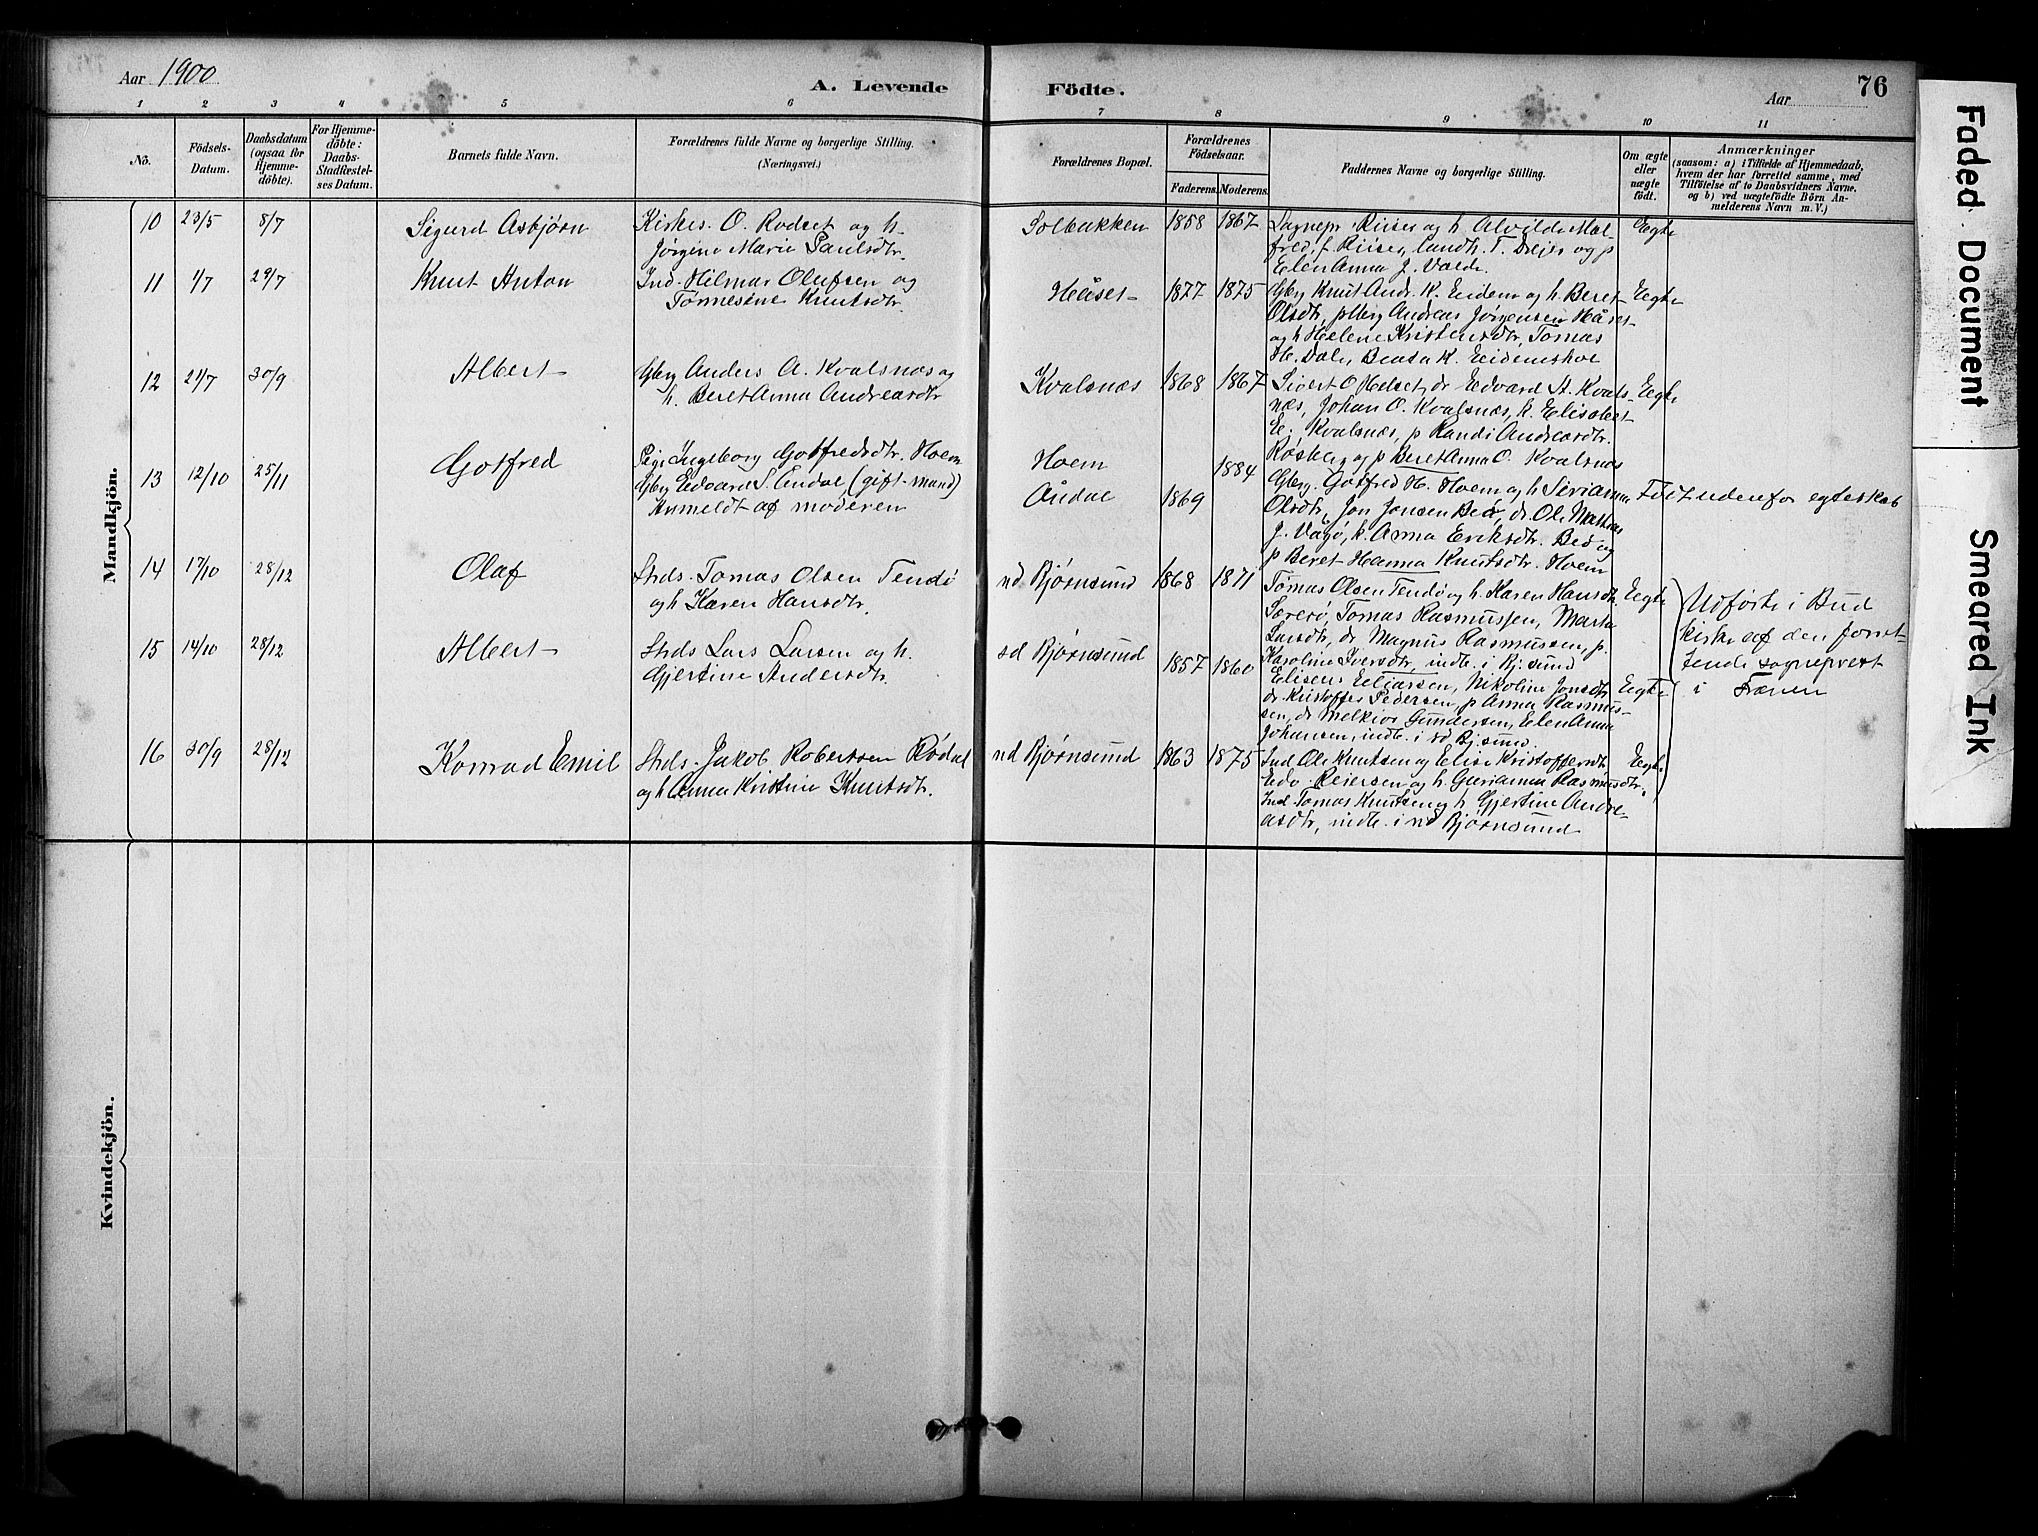 Aar 1900
A. Levende
Födte.
Aar
76
1 2 3 4 5 6 7 8 9 10 11
Nö.
Födsels-
Datum.
Daabsdatum
(ogsaa for
Hjemme-
döbte).
For Hjemme-
döbte:
Daabs-
Stadfæstel-
ses Datum.
Barnets fulde Navn.
Forældrenes fulde Navne og borgerlige Stilling.
(Næringsvei.)
Forældrenes Bopæl.
Forældrenes
Födselsaar.
Faderens.
Moderens.
Faddernes Navne og borgerlige Stilling.
Om ægte
eller
uægte
födt.
Anmærkninger
(saasom: a) i Tilfælde af Hjemmedaab,
hvem der har forrettet samme, med
Tilföielse af to Daabsvidners Navne,
og b) ved uægtefödte Börn An-
melderens Navn m. V.)
Mandkjön.
10 23/5 8/7 Sigurd Asbjørn
Kirkes. O. Rødset og h.
Jørgine Marie Paulsdtr.
Solbakken 1858 1867
Sognepr. Riiser og h Alvilde Mal-
fred, f. Riiser, Landh. T. Drejer og p
Elen Anna J. Valde.
Egte
11 1/7 29/7 Knut Anton
Ind. Hilmar Olufsen og
Tomesine Knutsdtr.
Håset 1877 1875
Gbrg Knut Andr. K. Eidem og h. Beret
Olsdtr, plbrg Andreas Jørgensen Håset
og h Helene Kristensdtr, Tomas
H. Dale, Beata K. Eidemshoe
Egte
12 21/7 30/9 Albert
Gbrg Anders A. Kvalsnæs og
h. Beret Anna Andreasdtr
Kvalsnæs 1868 1867
Sivert O Helset, dr Edvard A. Kvals-
næs, Johan O. Kvalsnæs, k. Elisabet
E. Kvalsnæs, p Randi Andreasdtr.
Røsberg og p Beret Anna O. Kvalsnæs
Egte
13 12/10 25/11 Gotfred
Pige Ingeborg Gotfredsdtr. Hoem
Gbrg Edvard S. Åndal (gift mand)
Anmeldt af moderen
Hoem 1884
Åndal 1869
Gbrg. Gotfred H. Hoem og h Serianna
Olsdtr, Jon Jonsen Bed, dr. Ole Mathias
J. Vågø, k. Anna Eriksdtr. Bed og
p Beret Hanna Knutsdtr. Hoem
Født udenfor egteskab
14 17/10 28/12 Olaf
Strds. Tomas Olsen Tendø
og h Karen Hansdtr.
nd Bjørnsund 1868 1871
Tomas Olsen Tendø og h. Karen Hansdtr.
Sørerø, Tomas Rasmussen, Marta
Larsdtr, dr Magnus Rasmussen, p.
Karoline Iversdtr, indb. i Bj.sund
Egte
Udførte i Bud
kirke af den forret-
tende sogneprest
i Frænen
15 14/10 28/12 Albert
Strds Lars Larsen og h.
Gjertine Andersdtr.
sd Bjørnsund 1857 1860
Elisens Eliassen, Nikoline Jonsdtr
dr Kristoffer Pedersen, p Anna Rasmus-
sen, dr Melkior Gundersen, Elen Anna
Johansen, indb. i sd Bj.sund.
Egte
16 30/9 28/12 Konrad Emil
Strds. Jakob Robertsen Rødal
og h Anna Kristine Knutsdtr.
nd Bjørnsund 1863 1875
Ind Ole Knutsen og Elise Kristoffersdtr
Edv Reiersen og h. Gurianna Rasmusdtr.
Ind Tomas Knutsen og h Gjertine Andre-
asdtr, indb. i nd Bjørnsund
Egte
Kvindekjön.
Faded Document
Smeared Ink